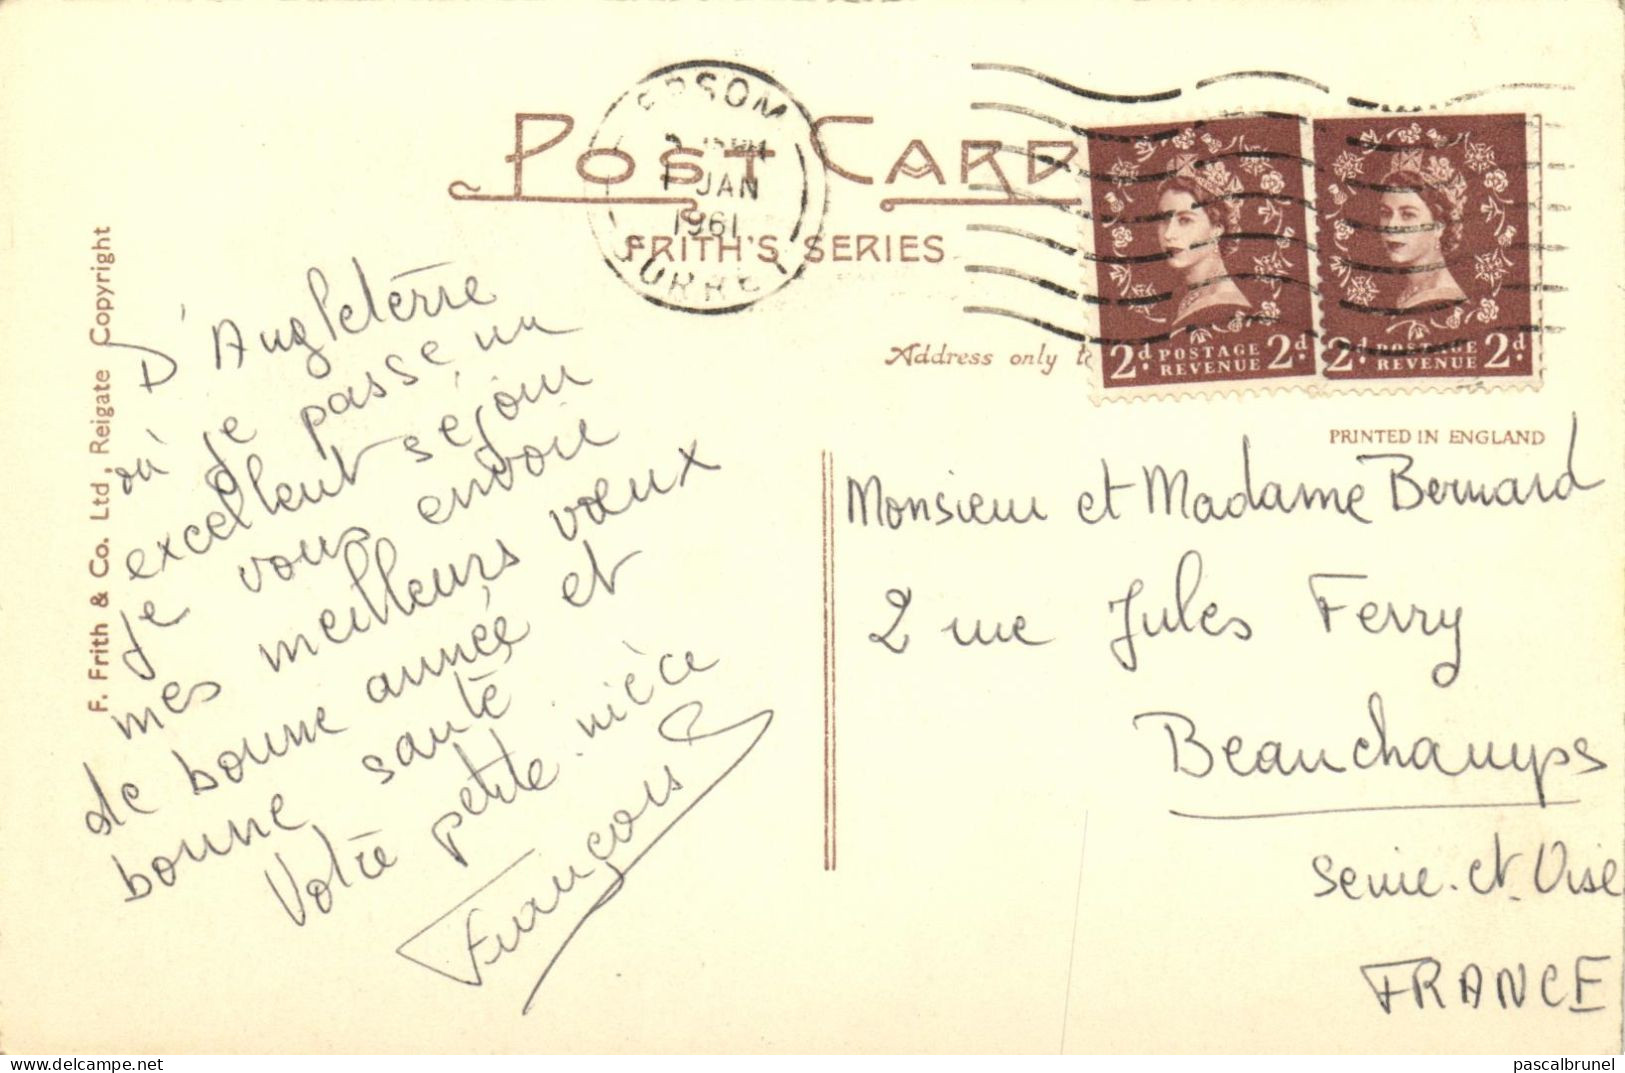 POST CARD
FRITH'S SERIES
EPSOM
JAN
1961
SURREY
Address only to
2d POSTAGE REVENUE 2d.
2d POSTAGE REVENUE 2d.
PRINTED IN ENGLAND
F. Frith & Co. Ltd, Reigate Copyright
D'Angleterre
où je passe un
excellent séjour
je vous envoie
mes meilleurs vœux
de bonne année et
bonne santé
Votre petite-nièce
Monsieur et Madame Bernard
2 rue Jules Ferry
Beauchamps
Seine-et-Oise
FRANCE
pascalbrunel